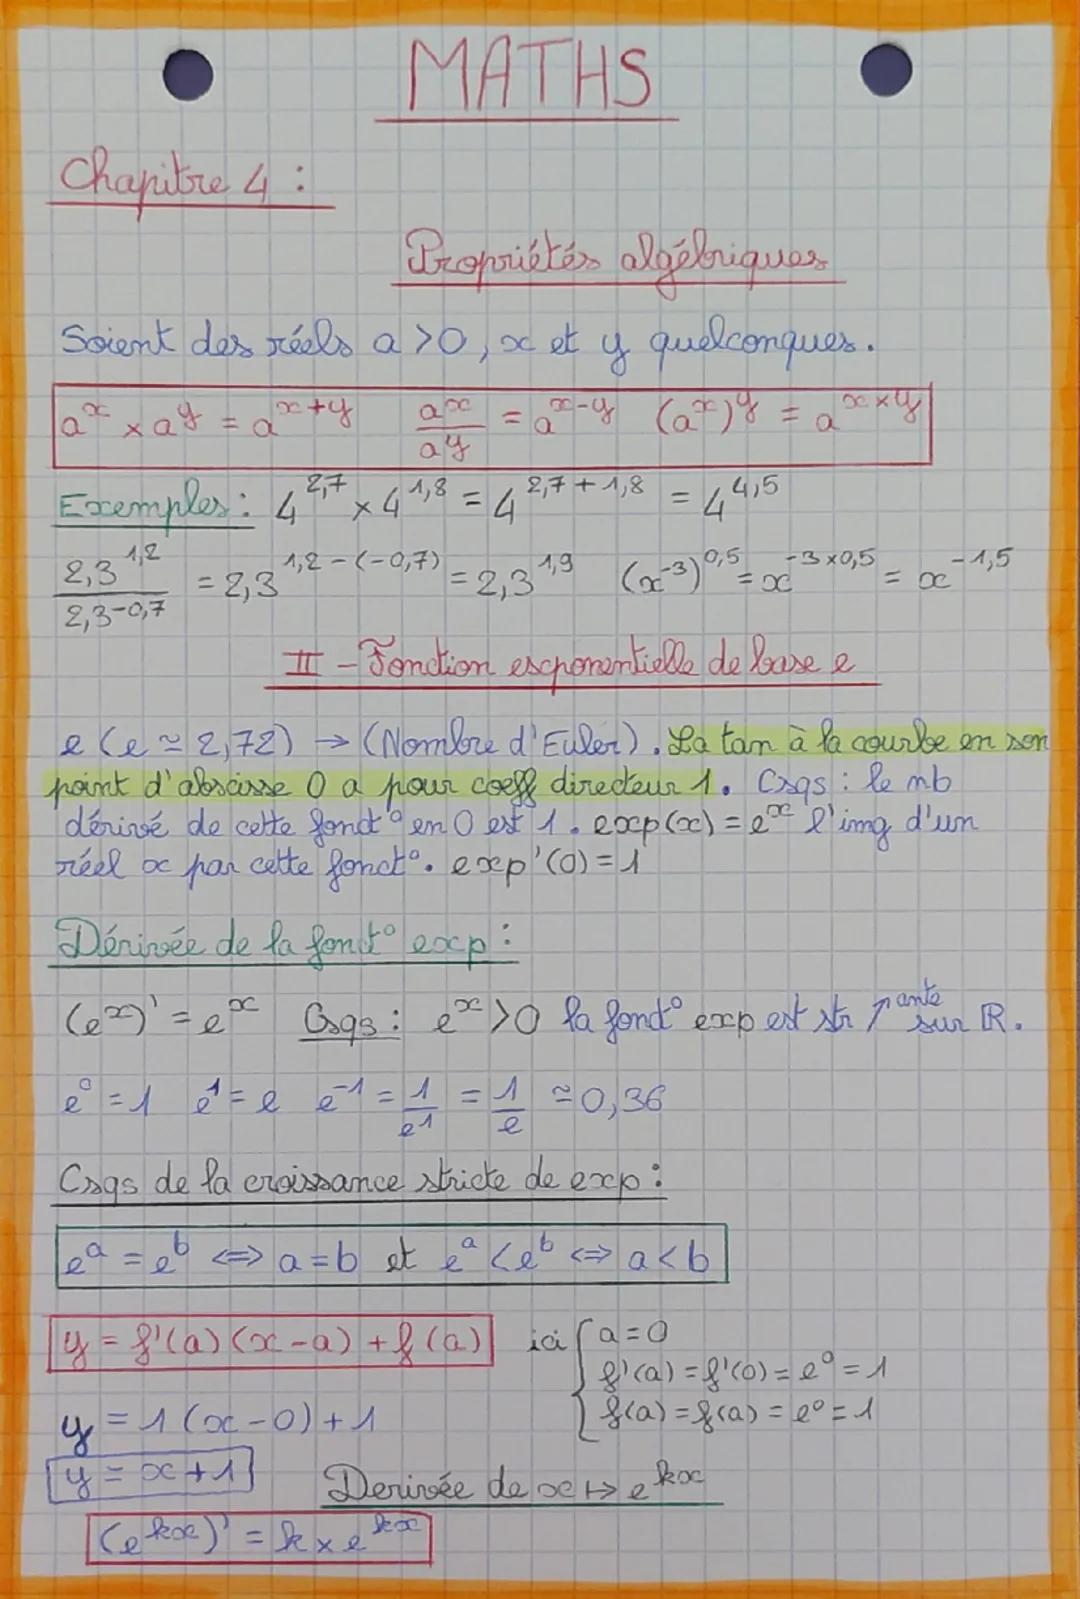 MATHS
Chapitre 4 :
Propriétés algébriques
Soient des réels a >0, x et y quelconques.
a^x × a^y = a^(x+y)   a^x / a^y = a^(x-y)   (a^x)^y = a^(x×y)
Exemples : 4^2,7 × 4^1,8 = 4^(2,7+1,8) = 4^4,5
2,3^1,2 / 2,3^-0,7 = 2,3^(1,2-(-0,7)) = 2,3^1,9   (x^-3)^0,5 = x^(-3×0,5) = x^-1,5
II - Fonction exponentielle de base e
e (e ≃ 2,72) → (Nombre d'Euler). La tan à la courbe en son
point d'abscisse 0 a pour coeff directeur 1. Csqs : le nb
dérivé de cette fonct° en 0 est 1. exp(x) = e^x l'img d'un
réel x par cette fonct°. exp'(0) = 1
Dérivée de la fonct° exp :
(e^x)' = e^x   Csqs : e^x >0 la fonct° exp est str ↗ante sur ℝ.
e^0 = 1   e^1 = e   e^-1 = 1/e^1 = 1/e ≃ 0,36
Csqs de la croissance stricte de exp :
e^a = e^b <=> a = b et e^a < e^b <=> a < b
y = f'(a) (x-a) + f(a)   ici { a = 0
f'(a) = f'(0) = e^0 = 1
y = 1 (x-0) + 1   f(a) = f(a) = e^0 = 1
y = x + 1   Derivée de x ↦ e^kx
(e^kx)' = k × e^kx